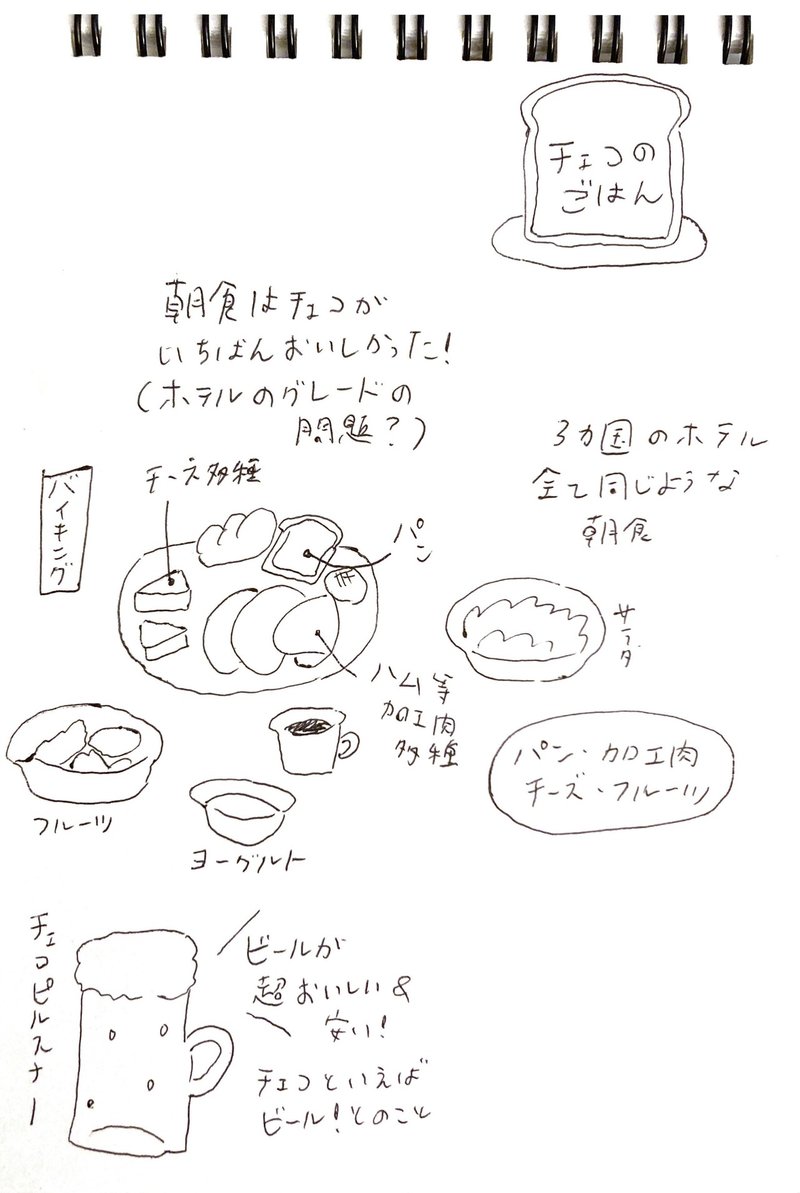 チェコの
ごはん
朝食はチェコが
いちばんおいしかった!
(ホテルのグレードの
問題?)
3カ国のホテル
全て同じような
朝食
バイキング
チーズ多種
パン
ハム等
加工肉
多種
サラダ
フルーツ
ヨーグルト
パン・加工肉
チーズ・フルーツ
チェコピルスナー
ビールが
超おいしい&
安い!
チェコといえば
ビール!とのこと